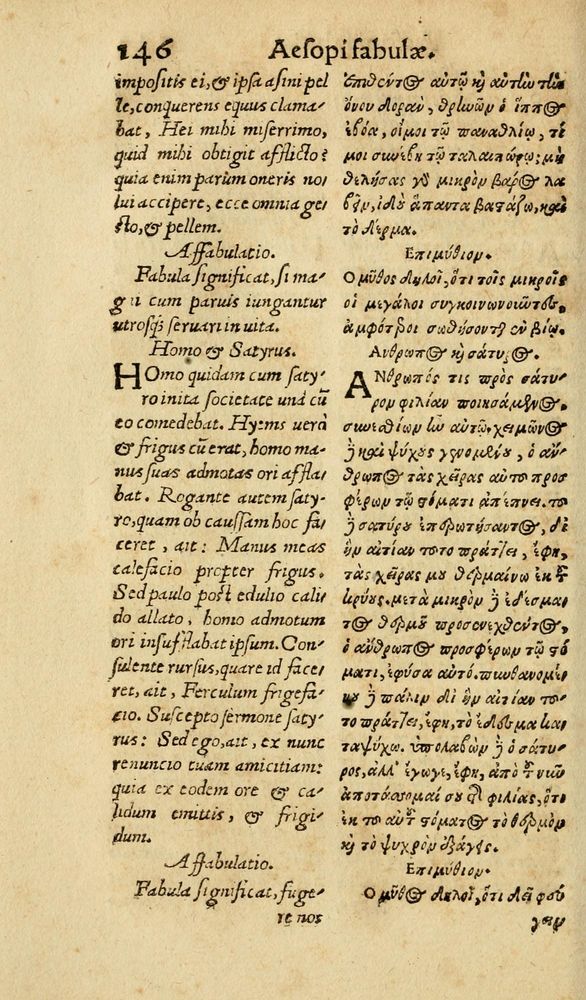 146 Aesopi fabulæ.
impositis ei, & ipsa asini pel
le, conquerens equus clama-
bat, Hei mihi miserrimo,
quid mihi obtigit afflicto?
quia enim parùm oneris no
lui accipere, ecce omnia ge-
sto, & pellem.
Affabulatio.
Fabula significat, si ma-
gni cum paruis iungantur
utrosq; seruari in uita.
Homo & Satyrus.
HOmo quidam cum saty-
ro inita societate unà cū
eo comedebat. Hyems uerò
& frigus cū erat, homo ma-
nus suas admotas ori affla-
bat. Rogante autem saty-
ro, quam ob caussam hoc fa-
ceret, ait: Manus meas
calefacio propter frigus.
Sed paulo post edulio cali-
do allato, homo admotum
ori insufflabat ipsum. Con-
sulente rursus, quare id face
ret, ait, Ferculum frigefa-
cio. Suscepto sermone saty-
rus: Sed ego, ait, ex nunc
renuncio tuam amicitiam:
quia ex eodem ore & ca-
lidum emittis, & frigi-
dum.
Affabulatio.
Fabula significat, fuge-
re nos
ἐπιθέντος αὐτῷ καὶ αὐτὴν τὴν
ὄνου δορὰν, θρηνῶν ὁ ἵππος
ἐβόα, οἴμοι τῷ παναθλίῳ, τί
μοι συνέβη τῷ ταλαιπώρῳ; μὴ
θελήσας γὰρ μικρὸν βάρος λα
βεῖν, ἰδοὺ ἅπαντα βαστάζω, καὶ
τὸ δέρμα.
Επιμύθιον.
Ο μῦθος δηλοῖ, ὅτι τοῖς μικροῖς
οἱ μεγάλοι συγκοινωνοῦντες,
ἀμφότεροι σωθήσονται ἐν βίῳ.
Ανθρωπος καὶ σάτυρος.
ΑΝθρωπός τις πρὸς σάτυ-
ρον φιλίαν ποιησάμενος,
συνεσθίων ἦν αὐτῷ. χειμῶνος
δὲ καὶ ψύχους γενομένου, ὁ ἄν-
θρωπος τὰς χεῖρας αὐτοῦ προσ
φέρων τῷ στόματι ἀπέπνει. τοῦ
δὲ σατύρου ἐπερωτήσαντος, δι'
ἣν αἰτίαν τοῦτο πράττει, ἔφη,
τὰς χεῖράς μου θερμαίνω ἐκ τοῦ
κρύους. μετὰ μικρὸν δὲ ἐδέσμα
τος θερμοῦ προσενεχθέντος,
ὁ ἄνθρωπος προσφέρων τῷ στό
ματι, ἐφύσα αὐτό. πυνθανομέ-
νου δὲ πάλιν δι' ἣν αἰτίαν τοῦ-
το πράττει, ἔφη, τὸ ἔδεσμα κα
ταψύχω. ὑπολαβὼν δὲ ὁ σάτυ-
ρος, ἀλλ' ἔγωγε, ἔφη, ἀπὸ τοῦ νῦν
ἀποτάσσομαί σου τῆς φιλίας, ὅτι
ἐκ τοῦ αὐτοῦ στόματος τὸ θερμὸν
καὶ τὸ ψυχρὸν ἐξάγεις.
Επιμύθιον.
Ο μῦθος δηλοῖ, ὅτι δεῖ φεύ
γειν